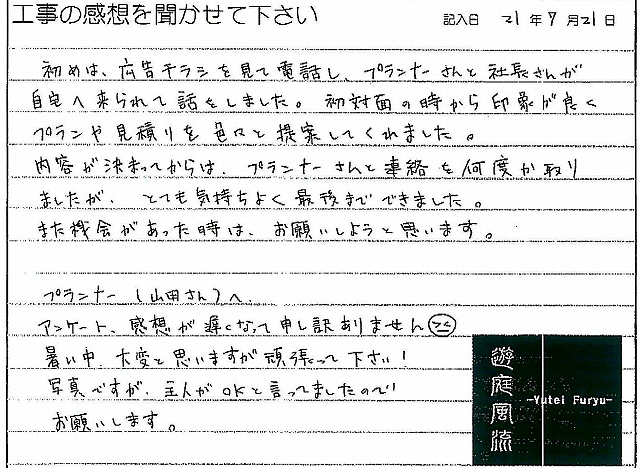 工事の感想を聞かせて下さい
記入日 21年7月21日
初めは、広告チラシを見て電話し、プランナーさんと社長さんが
自宅へ来られて話をしました。初対面の時から印象が良く
プランや見積りを色々と提案してくれました。
内容が決まってからは、プランナーさんと連絡を何度か取り
ましたが、とても気持ちよく最後までできました。
また機会があった時は、お願いしようと思います。
プランナー(山田さん)へ
アンケート、感想が遅くなって申し訳ありません
暑い中、大変と思いますが頑張って下さい!
写真ですが、主人がOKと言ってましたので
お願いします。
遊庭風流
-Yutei Furyu-